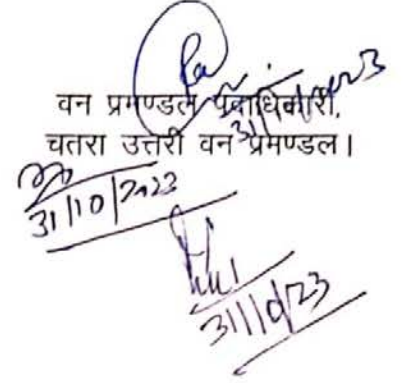 वन प्रमण्डल पदाधिकारी,
चतरा उत्तरी वन प्रमण्डल।
31/10/2023
31/10/2023
31/10/23